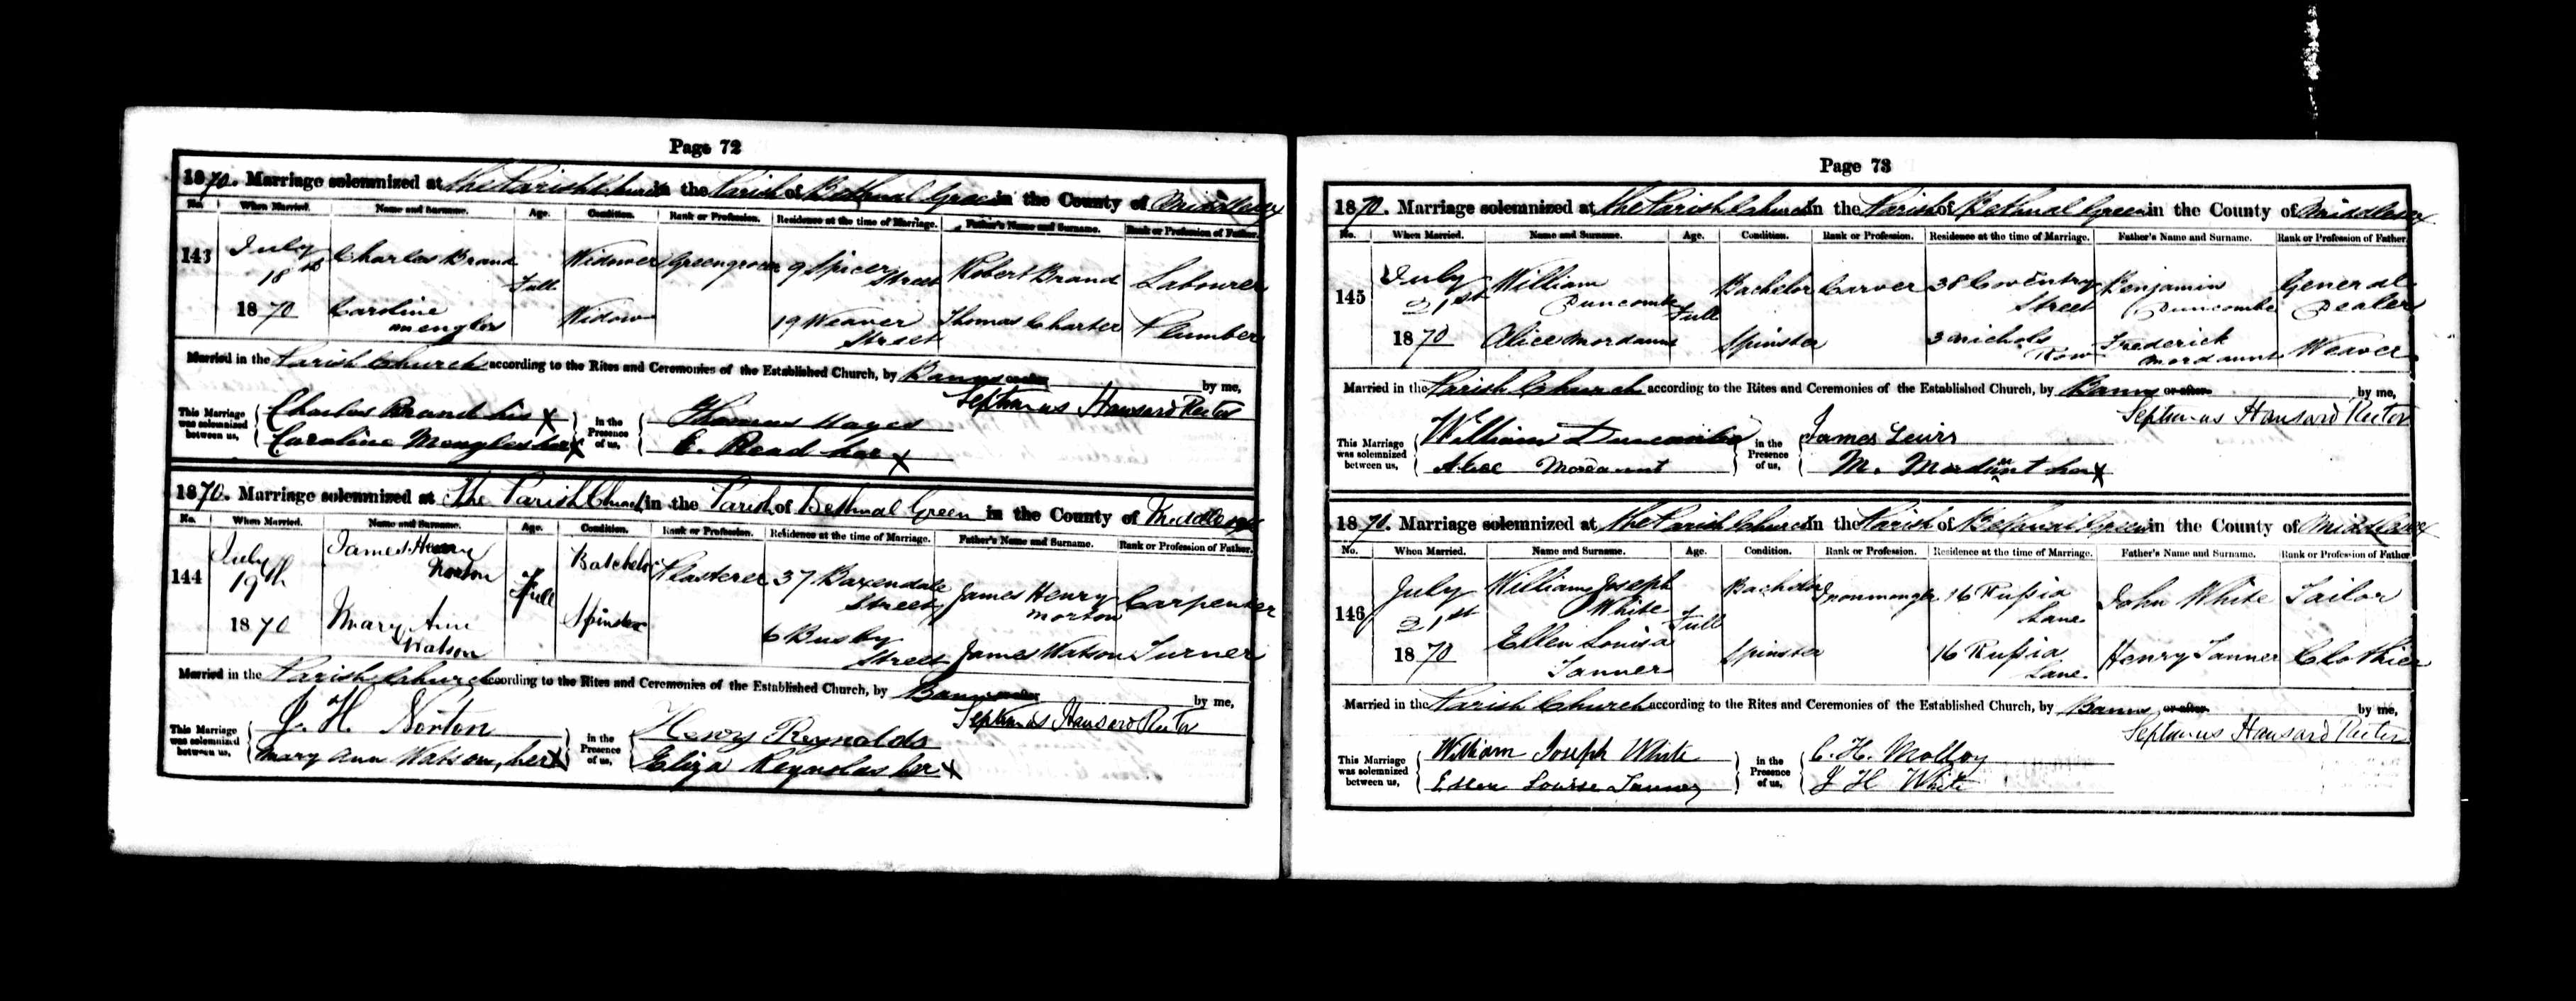 Page 72
1870. Marriage solemnized at the Parish Church in the Parish of Bethnal Green in the County of Middlesex
No. When Married. Name and Surname. Age. Condition. Rank or Profession. Residence at the time of Marriage. Father's Name and Surname. Rank or Profession of Father.
143 July 18th 1870 Charles Brand Full Widower Greengrocer 9 Spicer Street Robert Brand Labourer
Caroline Mengles Widow 19 Weaver Street Thomas Charter Plumber
Married in the Parish Church according to the Rites and Ceremonies of the Established Church, by Banns or after by me,
Septimus Hansard Rector
This Marriage was solemnized between us, Charles Brand his X in the Presence of us, Thomas Hayes
Caroline Mengles her X E. Read her X
1870. Marriage solemnized at The Parish Church in the Parish of Bethnal Green in the County of Middlesex
No. When Married. Name and Surname. Age. Condition. Rank or Profession. Residence at the time of Marriage. Father's Name and Surname. Rank or Profession of Father.
144 July 19th 1870 James Henry Norton Full Batchelor Plasterer 37 Baxendale Street James Henry Morton Carpenter
Mary Ann Watson Spinster 6 Busby Street James Watson Turner
Married in the Parish Church according to the Rites and Ceremonies of the Established Church, by Banns by me,
Septimus Hansard Rector
This Marriage was solemnized between us, J. H. Norton in the Presence of us, Henry Reynolds
Mary Ann Watson, her X Eliza Reynolds her X
Page 73
1870. Marriage solemnized at the Parish Church in the Parish of Bethnal Green in the County of Middlesex
No. When Married. Name and Surname. Age. Condition. Rank or Profession. Residence at the time of Marriage. Father's Name and Surname. Rank or Profession of Father.
145 July 21st 1870 William Duncombe Full Bachelor Carver 38 Coventry Street Benjamin Duncombe General Dealer
Alice Mordaunt Spinster 3 Nichols Row Frederick Mordaunt Weaver
Married in the Parish Church according to the Rites and Ceremonies of the Established Church, by Banns or after by me,
Septimus Hansard Rector
This Marriage was solemnized between us, William Duncombe in the Presence of us, James Lewis
Alice Mordaunt M. Mordaunt her X
1870. Marriage solemnized at the Parish Church in the Parish of Bethnal Green in the County of Middlesex
No. When Married. Name and Surname. Age. Condition. Rank or Profession. Residence at the time of Marriage. Father's Name and Surname. Rank or Profession of Father.
146 July 21st 1870 William Joseph White Full Bachelor Ironmonger 16 Russia Lane. John White Tailor
Ellen Louisa Tanner Spinster 16 Russia Lane. Henry Tanner Clothier
Married in the Parish Church according to the Rites and Ceremonies of the Established Church, by Banns or after by me,
Septimus Hansard Rector
This Marriage was solemnized between us, William Joseph White in the Presence of us, C. H. Molloy
Ellen Louise Tanner J H White